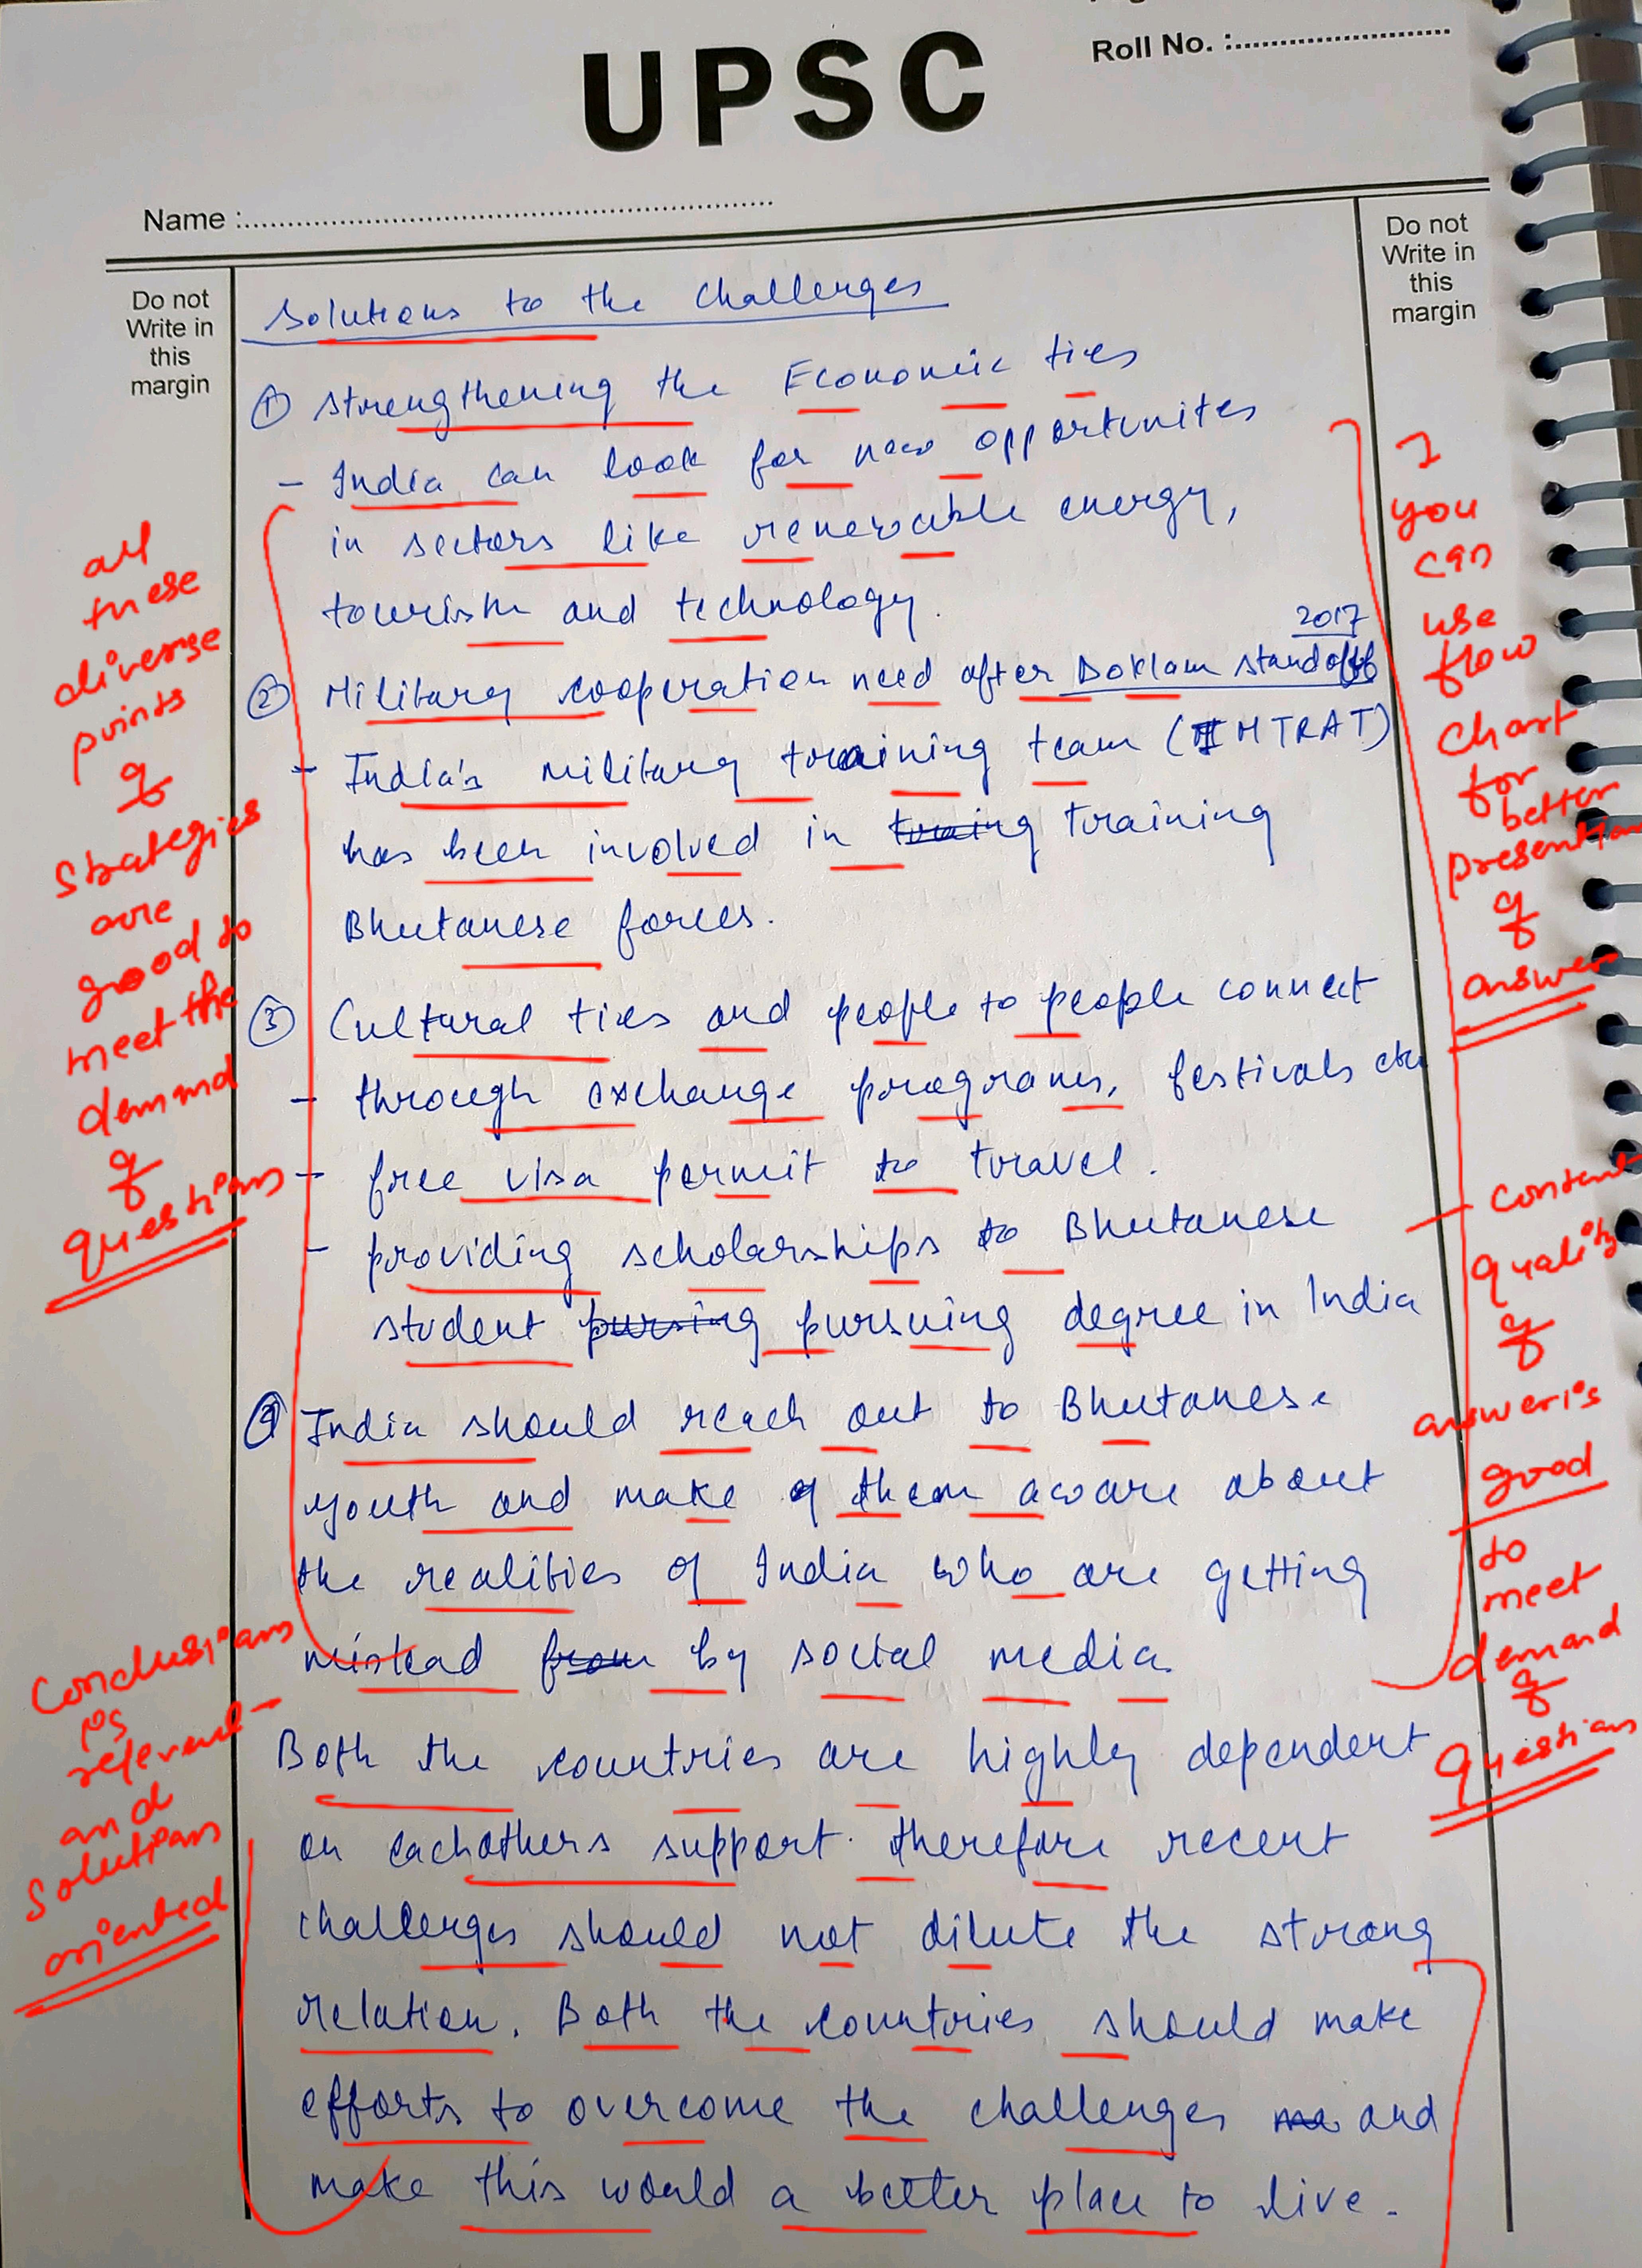 Roll No. :
UPSC
Name :
Do not
Write in
this
margin
Do not
Write in
this
margin
Solutions to the Challenges
① strengthening the Economic ties
- India can look for new opportunites
in sectors like renewable energy,
tourism and technology.
2017
② Military cooperation need after Doklam standoff
- India's military training team (IMTRAT)
has been involved in training
Bhutanese forces.
③ Cultural ties and people to people connect
- through exchange programs, festivals etc
- free visa permit to travel.
- providing scholarships to Bhutanese
student pursuing degree in India
④ India should reach out to Bhutanese
youth and make them aware about
the realities of India who are getting
mislead by social media.
Both the countries are highly dependent
on eachothers support. therefore recent
challenges should not dilute the strong
relation. Both the countries should make
efforts to overcome the challenges and
make this world a better place to live.
all
these
diverse
points
of
strategies
are
good to
meet the
demand
of
questions
Conclusions
is
relevent
and
solutions
oriented
you
can
use
flow
chart
for
better
presentation
of
answer
- content
quality
of
answer is
good
to
meet
demand
of
questions